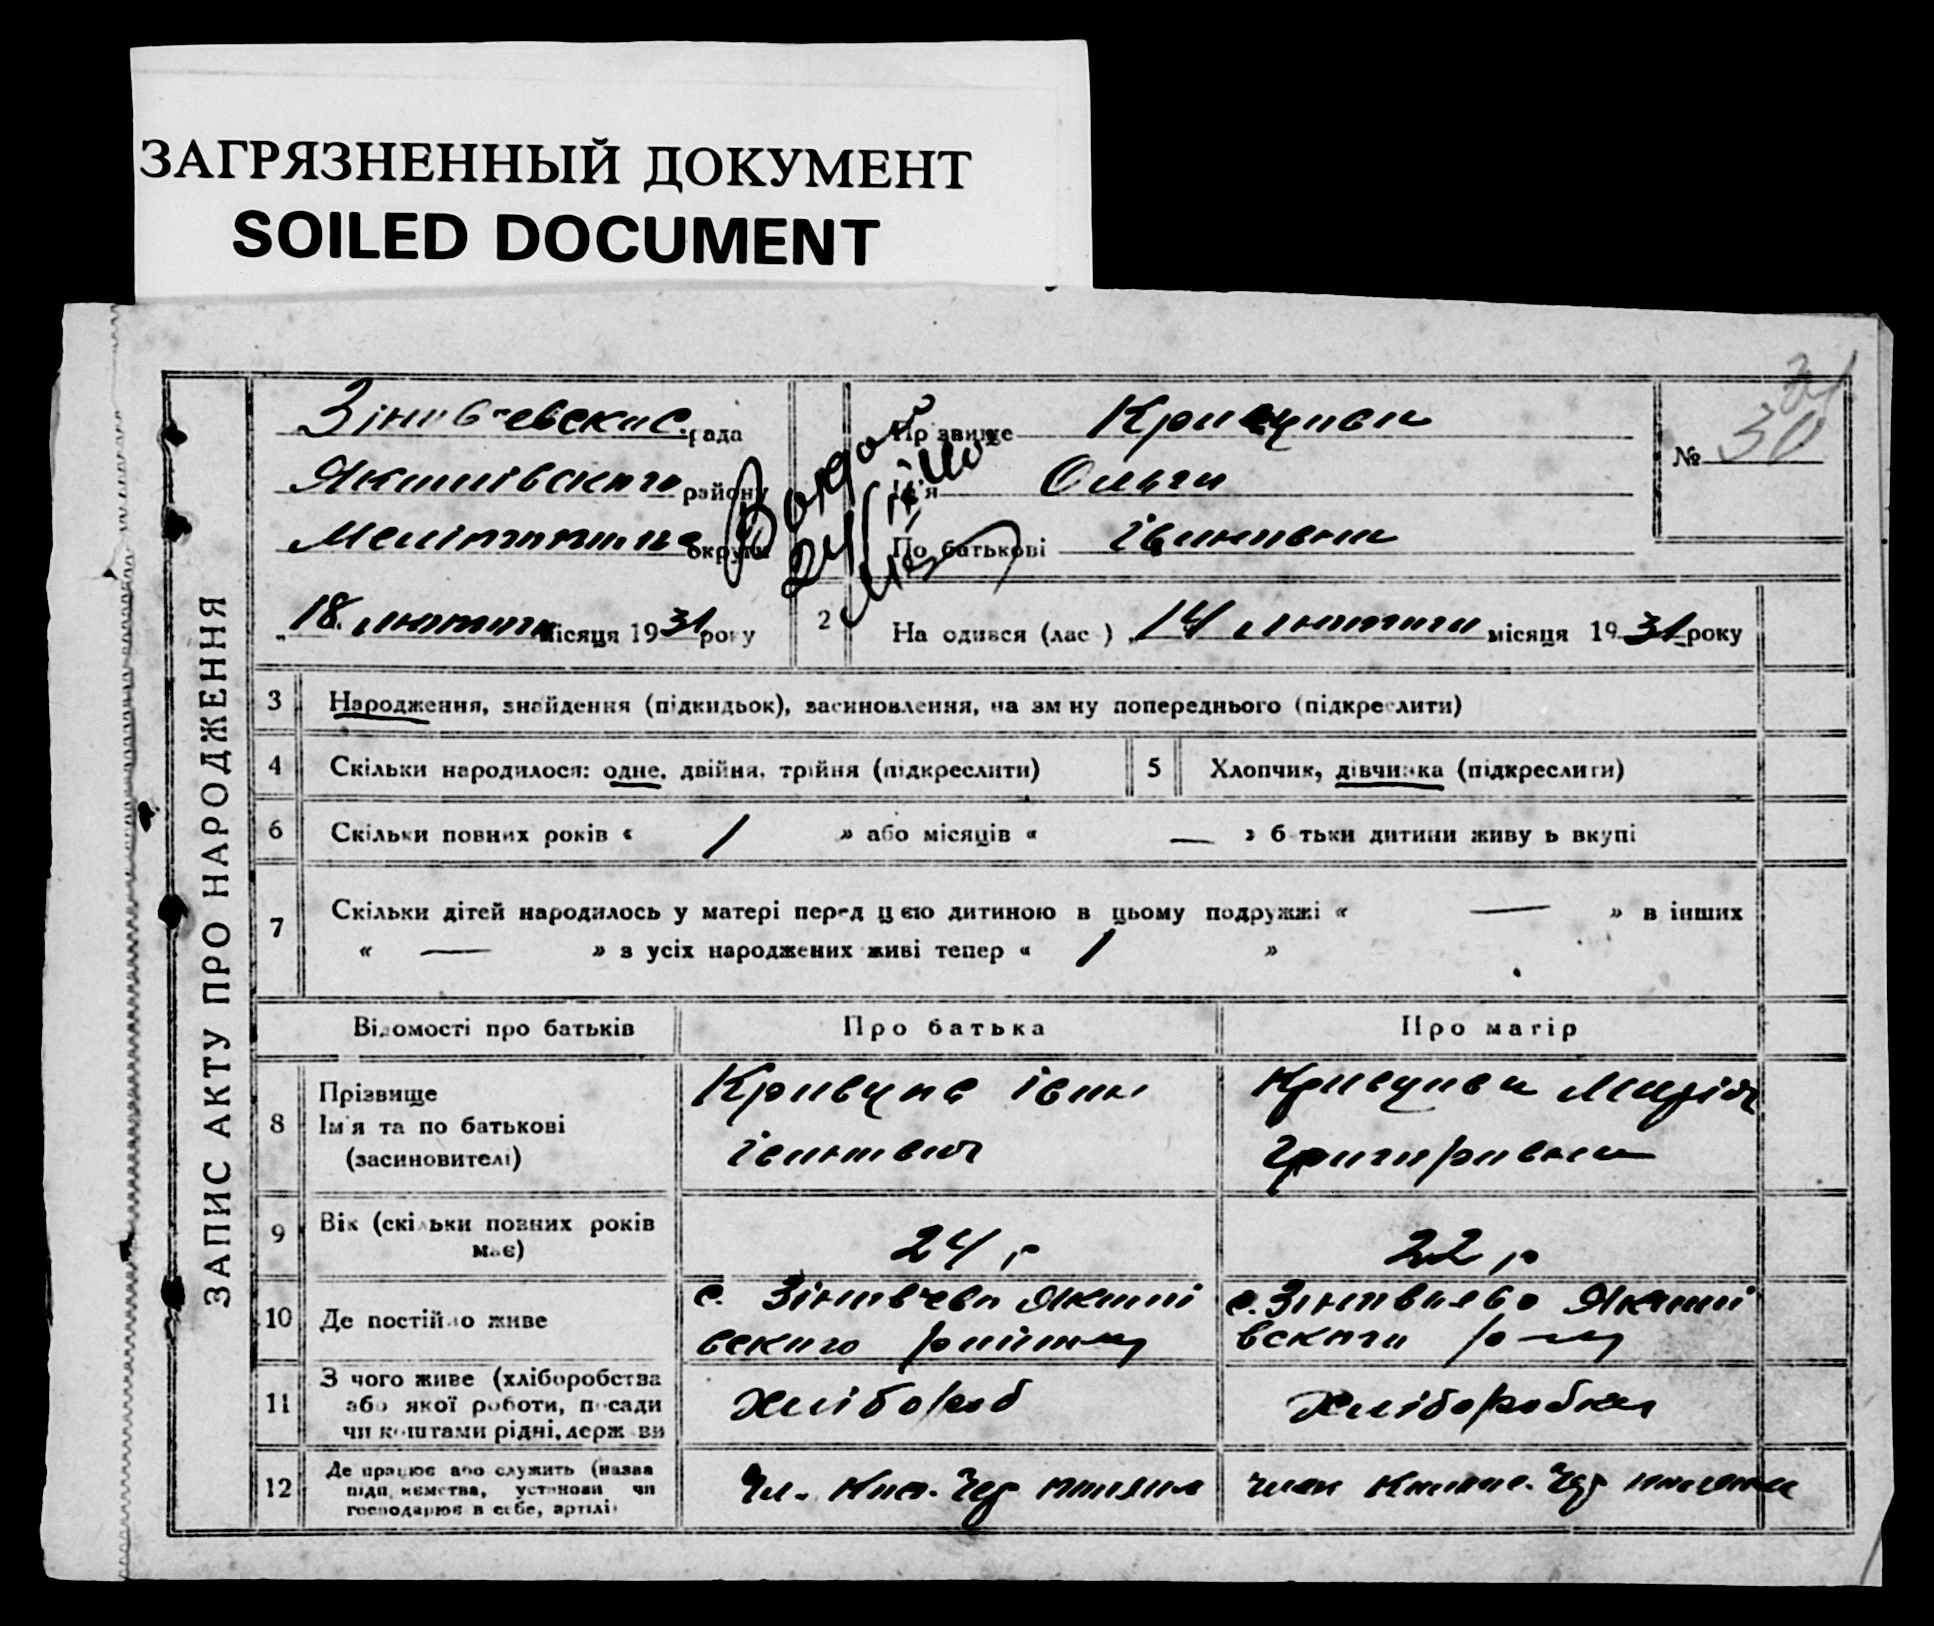 ЗАГРЯЗНЕННЫЙ ДОКУМЕНТ
SOILED DOCUMENT
ЗАПИС АКТУ ПРО НАРОДЖЕННЯ
рада
Якимівского району
округи
18 лютого місяця 1931 року
Прізвище
Ім'я Ольга
По батькові Івановна
№ 30
31
2 Народився (лась) 14 лютого місяця 1931 року
3 Народження, знайдення (підкидьок), засиновлення, на зміну попереднього (підкреслити)
4 Скільки народилося: одне, двійня, трійня (підкреслити)
5 Хлопчик, дівчинка (підкреслити)
6 Скільки повних років « 1 » або місяців « — » батьки дитини живуть вкупі
7 Скільки дітей народилось у матері перед цією дитиною в цьому подружжі « — » в інших
« — » з усіх народжених живі тепер « 1 »
Відомості про батьків Про батька Про матір
8 Прізвище
Ім'я та по батькові
(засиновителі)
Кривцов Іван
Іванович
Кривцова Марія
Григоровна
9 Вік (скільки повних років
має)
24 р
22 р
10 Де постійно живе
с. Якимі
вского району
с. Якимі
вского р-ну
11 З чого живе (хліборобства
або якої роботи, посади
чи коштами рідні, держави
Хлібороб
Хліборобка
12 Де працює або служить (назва
підприємства, установи чи
господарює в себе, артілі)
Чл.
член